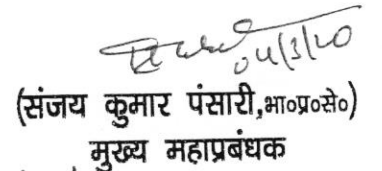 04/3/20
(संजय कुमार पंसारी,भा०प्र०से०)
मुख्य महाप्रबंधक